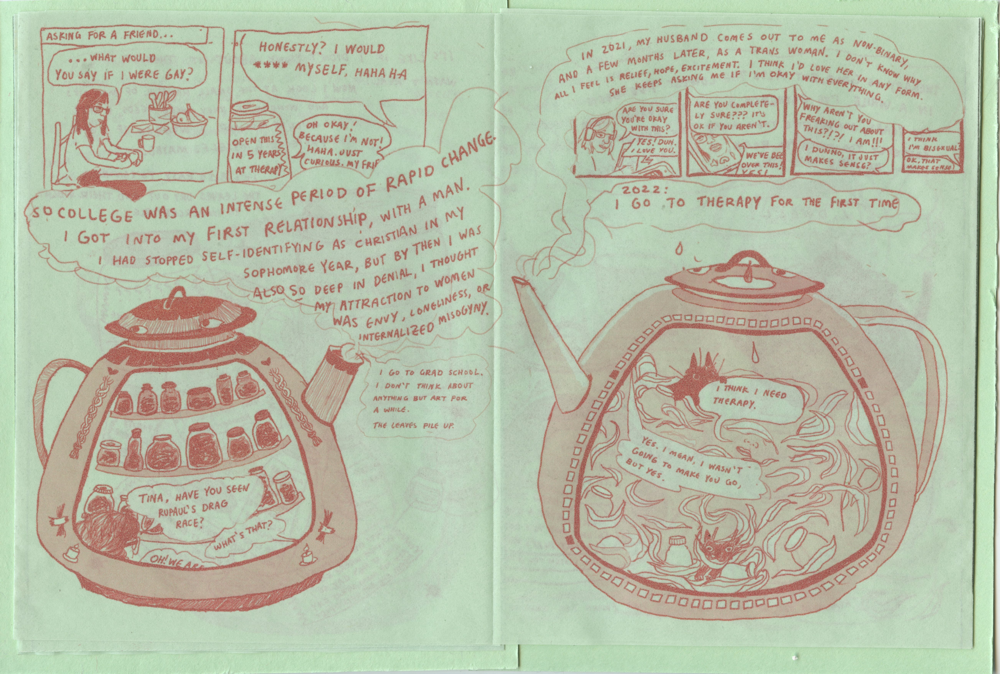 ASKING FOR A FRIEND...
...WHAT WOULD
YOU SAY IF I WERE GAY?
HONESTLY? I WOULD
**** MYSELF. HAHA HA
OPEN THIS
IN 5 YEARS
AT THERAPY
OH OKAY!
BECAUSE I'M NOT!
HAHA. JUST
CURIOUS. MY FRI
SO COLLEGE WAS AN INTENSE PERIOD OF RAPID CHANGE.
I GOT INTO MY FIRST RELATIONSHIP, WITH A MAN.
I HAD STOPPED SELF-IDENTIFYING AS CHRISTIAN IN MY
SOPHOMORE YEAR, BUT BY THEN I WAS
ALSO SO DEEP IN DENIAL, I THOUGHT
MY ATTRACTION TO WOMEN
WAS ENVY, LONELINESS, OR
INTERNALIZED MISOGYNY.
I GO TO GRAD SCHOOL.
I DON'T THINK ABOUT
ANYTHING BUT ART FOR
A WHILE.
THE LEAVES PILE UP.
TINA, HAVE YOU SEEN
RUPAUL'S DRAG
RACE?
WHAT'S THAT?
OH! WE ARE
IN 2021, MY HUSBAND COMES OUT TO ME AS NON-BINARY,
AND A FEW MONTHS LATER, AS A TRANS WOMAN. I DON'T KNOW WHY
ALL I FEEL IS RELIEF, HOPE, EXCITEMENT. I THINK I'D LOVE HER IN ANY FORM.
SHE KEEPS ASKING ME IF I'M OKAY WITH EVERYTHING.
ARE YOU SURE
YOU'RE OKAY
WITH THIS?
YES! DUH.
I LOVE YOU.
ARE YOU COMPLETE-
LY SURE??? IT'S
OK IF YOU AREN'T.
WE'VE BEE
OVER THIS!
YES!
WHY AREN'T YOU
FREAKING OUT ABOUT
THIS?!?! I AM!!
I DUNNO, IT JUST
MAKES SENSE?
I THINK
I'M BISEXUAL
OK, THAT
MAKES SENSE!
2022:
I GO TO THERAPY FOR THE FIRST TIME
I THINK I NEED
THERAPY.
YES. I MEAN, I WASN'T
GOING TO MAKE YOU GO,
BUT YES.